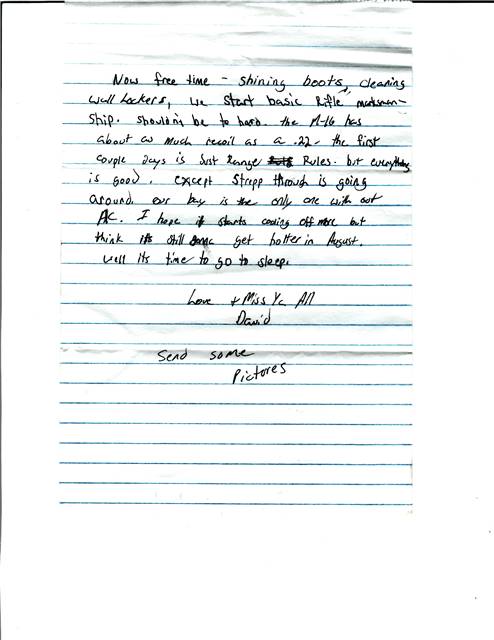 Now free time - shining boots, cleaning
wall lockers, we start basic Rifle marksman-
ship. shouldn't be to hard. the M-16 has
about as much recoil as a .22 - the first
couple days is Just Range Rules. but everything
is good. except Strepp through is going
around. our bay is the only one with out
AC. I hope it starts cooling off more but
think its still gonna get hotter in August.
well its time to go to sleep.
Love + Miss Ya All
David
Send some
Pictores